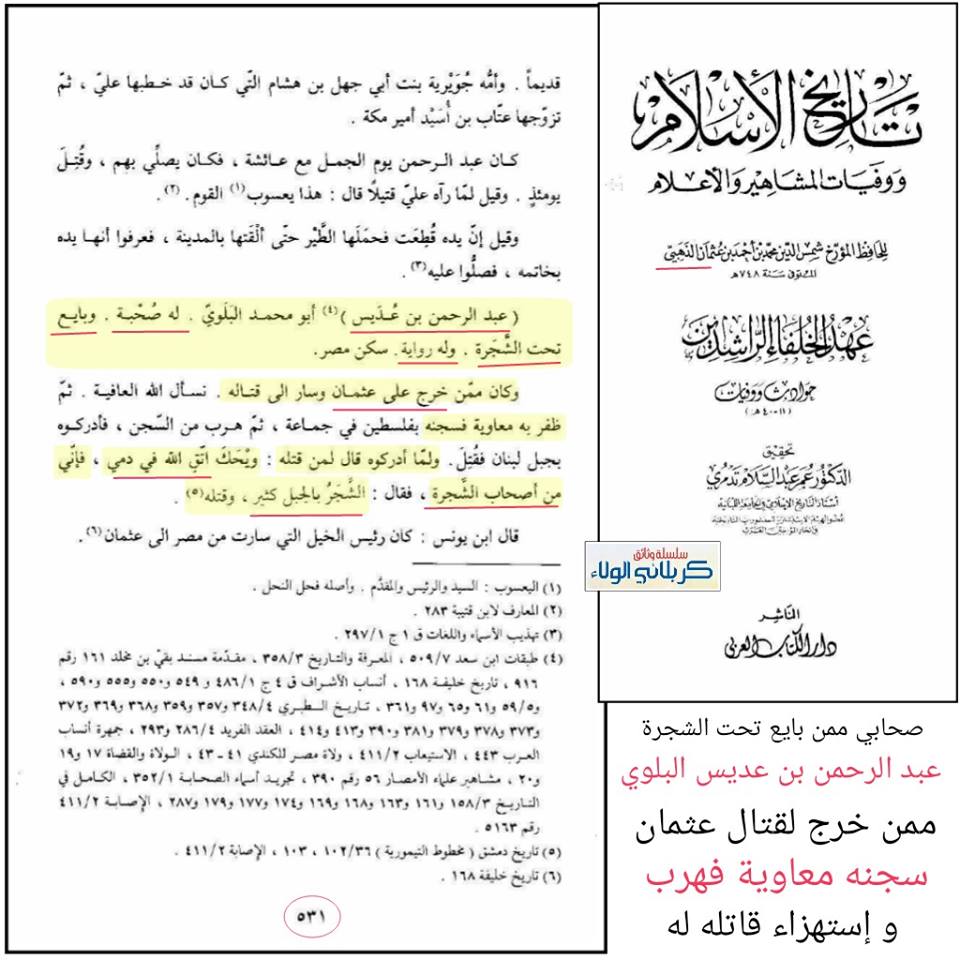 قديماً . وأمّه جُوَيْرية بنت أبي جهل بن هشام التّي كان قد خطبها عليّ ، ثمّ
تزوّجها عتّاب بن أُسَيْد أمير مكة .
كان عبد الرحمن يوم الجمل مع عائشة ، فكان يصلِّي بهم ، وقُتِلَ
يومئذٍ . وقيل لمّا رآه عليّ قتيلاً قال : هذا يعسوب(١) القوم . (٢).
وقيل إنّ يده قُطِعَت فحمَلَها الطَّيْر حتّى ألْقَتها بالمدينة ، فعرفوا أنهـا يده
بخاتمه ، فصلُّوا عليه(٣).
( عبد الرحمن بن عُدَيس )(٤) أبو محمد البَلَويّ . له صُحْبة . وبايع
تحت الشَّجَرة . وله رواية. سكن مصر.
وكان ممّن خرج على عثمـان وسار الى قتـاله . نسـأل الله العافيـة . ثمّ
ظفر به معاوية فسجنه بفلسطين في جماعة ، ثمّ هرب من السّجن ، فأدركوه
بجبل لبنان فقُتِلَ. ولمّا أدركوه قال لمن قتله : ويْحَكَ اتّقِ الله في دمي ، فإنّي
من أصحاب الشَّجرة ، فقال : الشَّجَرُ بالجبل كثير ، وقتله(٥) .
قال ابن يونس : كان رئيس الخيل التي سارت من مصر الى عثمان(٦) .
(١) اليعسوب : السيد والرئيس والمقدَّم . وأصله فحل النحل .
(٢) المعارف لابن قتيبة ٢٨٣ .
(٣) تهذيب الأسماء واللغات ق ١ ج ٢٩٧/١ .
(٤) طبقات ابن سعد ٥٠٩/٧ ، المعرفة والتاريخ ٣٥٨/٣ ، مقدّمة مسند بقيّ بن مخلد ١٦١ رقم
٩١٦ ، تاريخ خليفة ١٦٨ ، أنساب الأشراف ق ٤ ج ٤٨٦/١ و ٥٤٩ و٥٥٠ و٥٥٥ و٥٩٠ ،
و٥٩/٥ و٦١ و٦٥ و٩٧ و٣٦١ ، تـاريـخ الـطبـري ٣٤٨/٤ و٣٥٧ و٣٥٩ و٣٦٨ و٣٦٩ و٣٧٢
و٣٧٣ و٣٧٨ و٣٧٩ و٣٨١ و٣٩٠ و٤١٣ و٤١٤ ، العقد الفريد ٢٨٦/٤ و٢٩٣ ، جمهرة أنساب
العرب ٤٤٣ ، الاستيعاب ٤١١/٢ ، ولاة مصر للكندي ٤١ - ٤٣ ، الولاة والقضاة ١٧ و١٩
و٢٠ ، مشاهير علماء الأمصار ٥٦ رقم ٣٩٠ ، تجريد أسماء الصحابة ٣٥٢/١ ، الكامل في
التاريخ ١٥٨/٣ و١٦١ و١٦٣ و١٦٨ و١٦٩ و١٧٤ و١٧٧ و١٧٩ و٢٨٧ ، الإصابة ٤١١/٢
رقم ٥١٦٣ .
(٥) تاريخ دمشق ( مخطوط التيمورية ) ١٠٢/٣٦ ، ١٠٣ ، الإصابة ٤١١/٢ .
(٦) تاريخ خليفة ١٦٨ .
٥٣١
تاريخ الإسلام
ووفيات المشاهير والأعلام
للحافظ المؤرخ شمس الدين محمد بن أحمد بن عثمان الذهبي
المتوفى سنة ٧٤٨هـ
عهد الخلفاء الراشدين
حوادث ووفيات
(١١-٤٠هـ)
تحقيق
الدكتور عمر عبد السلام تدمري
أستاذ التاريخ الإسلامي في الجامعة اللبنانية
سلسلة وثائق
كربلائي الولاء
الناشر
دار الكتاب العربي
صحابي ممن بايع تحت الشجرة
عبد الرحمن بن عديس البلوي
ممن خرج لقتال عثمان
سجنه معاوية فهرب
و إستهزاء قاتله له